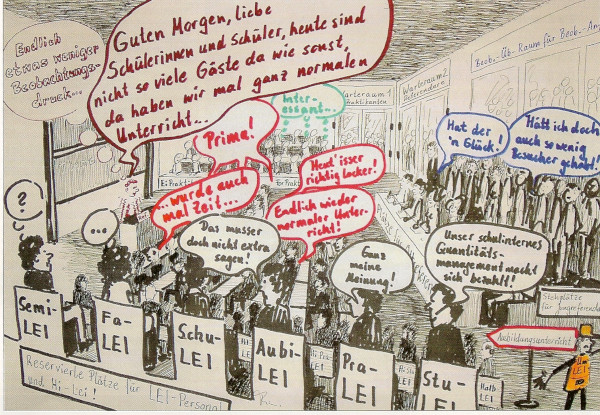 Endlich
etwas weniger
Beobachtungs-
druck...
Guten Morgen, liebe
Schülerinnen und Schüler, heute sind
nicht so viele Gäste da wie sonst,
da haben wir mal ganz normalen
Unterricht...
Beob.-Üb.-Raum für Beob.-An
Warteraum 2
Referendare
Warteraum 1
Praktikanten
Inter-
essant...
Prima!
Hat der
'n Glück!
Hätt ich doch
auch so wenig
Besucher gehabt!
Heut' isser
richtig locker!
...wurde auch
mal Zeit...
Endlich wieder
normaler Unter-
richt!
?
...
Das musser
doch nicht extra
sagen!
Ganz
meine
Meinung!
Unser schulinternes
Quantitäts-
management macht
sich bezahlt!
Stehplätze
für Jungreferendare
Semi-
LEI
Fa-
LEI
Schu-
LEI
Aubi-
LEI
Pra-
LEI
Stu-
LEI
Hilfs
LEI
Ausbildungsunterricht
LEI
Reservierte Plätze für LEI-Personal
und Hi-Lei!